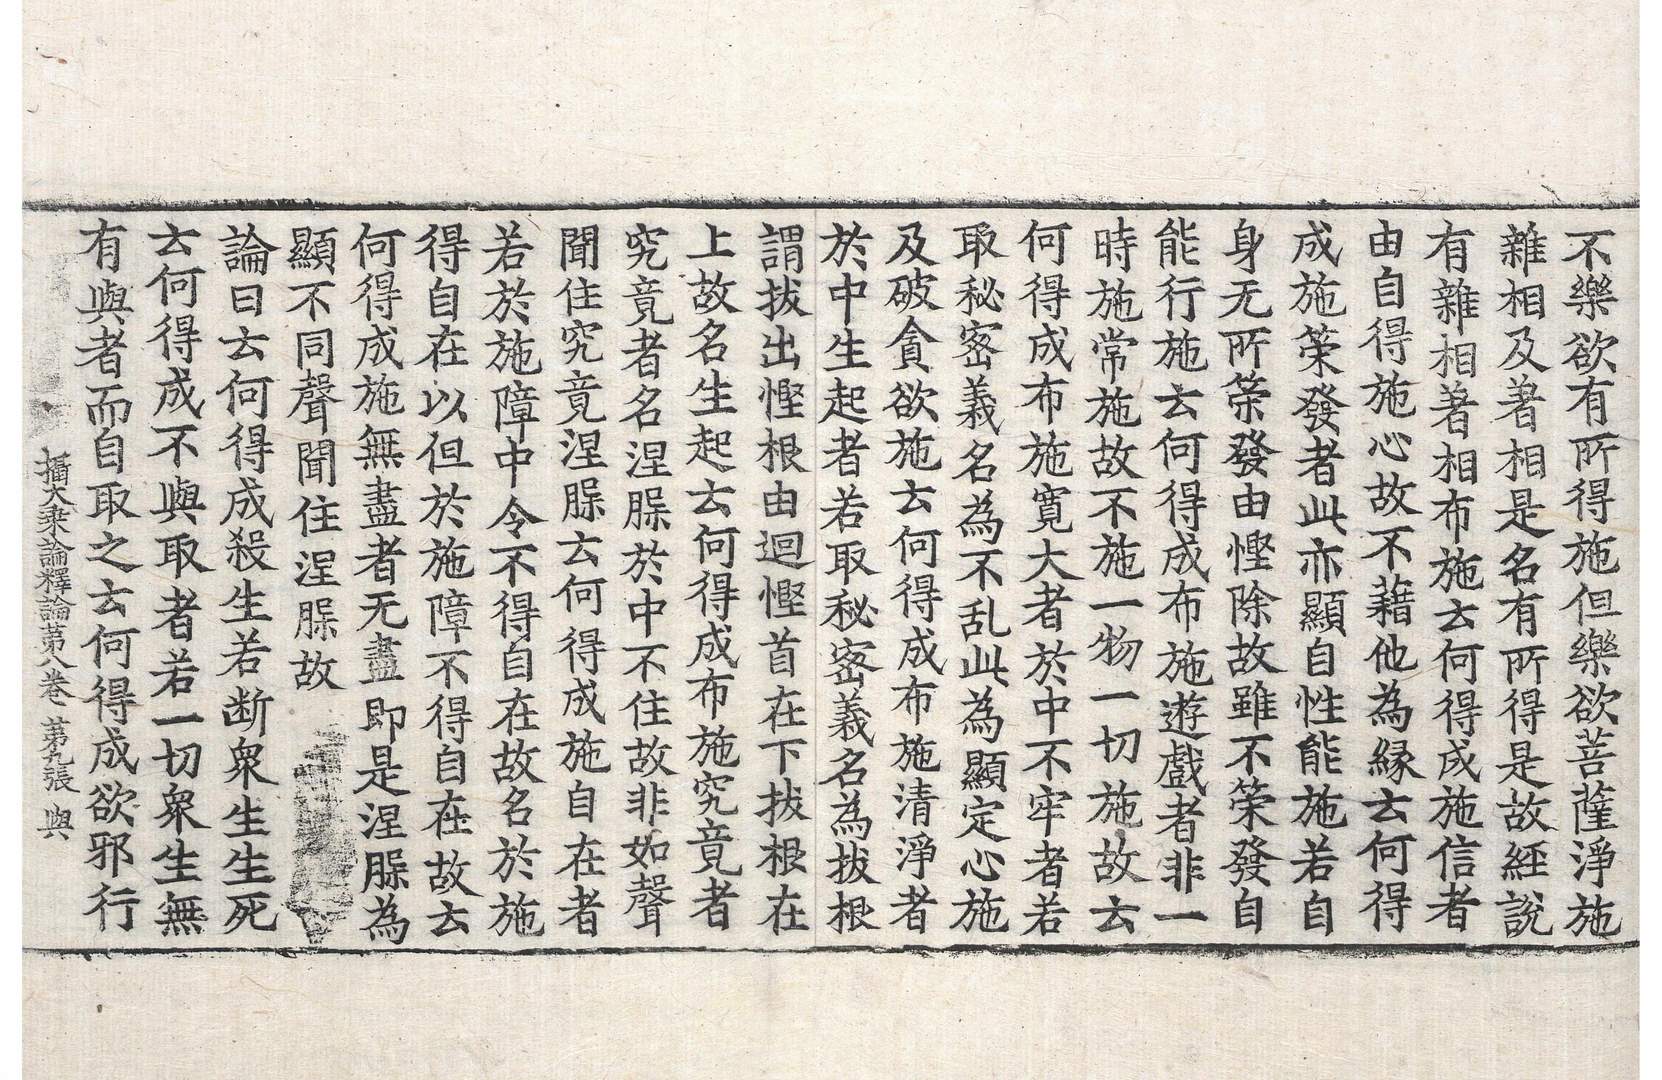 不樂欲有所得施但樂欲菩薩淨施
雜相及著相是名有所得是故経說
有雜相著相布施去何得成施信者
由自得施心故不藉他為縁去何得
成施策發者此亦顯自性能施若自
身无所策發由慳除故雖不策發自
能行施去何得成布施遊戲者非一
時施常施故不施一物一切施故去
何得成布施寛大者於中不牢者若
取秘密義名為不乱此為顯定心施
及破貪欲施去何得成布施清淨者
於中生起者若取秘密義名為拔根
謂拔出慳根由迴慳首在下拔根在
上故名生起去何得成布施究竟者
究竟者名涅腺於中不住故非如聲
聞住究竟涅腺去何得成施自在者
若於施障中令不得自在故名於施
得自在以但於施障不得自在故去
何得成施無盡者无盡即是涅腺為
顯不同聲聞住涅腺故
論曰去何得成殺生若断衆生生死
去何得成不與取者若一切衆生無
有與者而自取之去何得成欲邪行
攝大乗論釋論第八卷 第九張 與